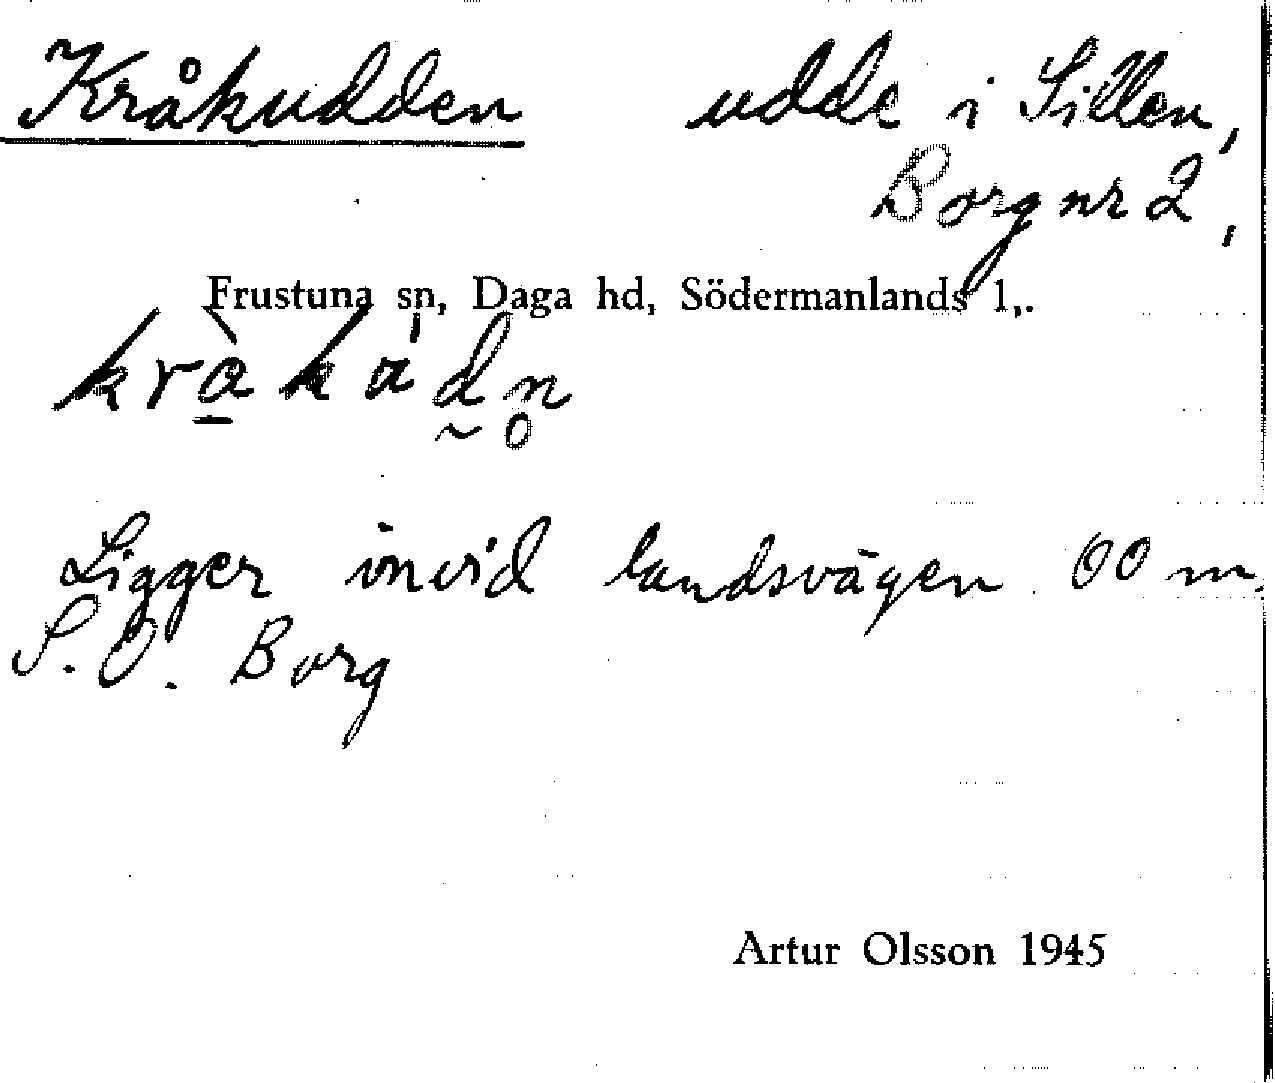 Kråkudden udde i Sillen,
Borg nr 2,
Frustuna sn, Daga hd, Södermanlands l,.
Ligger invid landsvägen 00 m.
S.O. Borg
Artur Olsson 1945